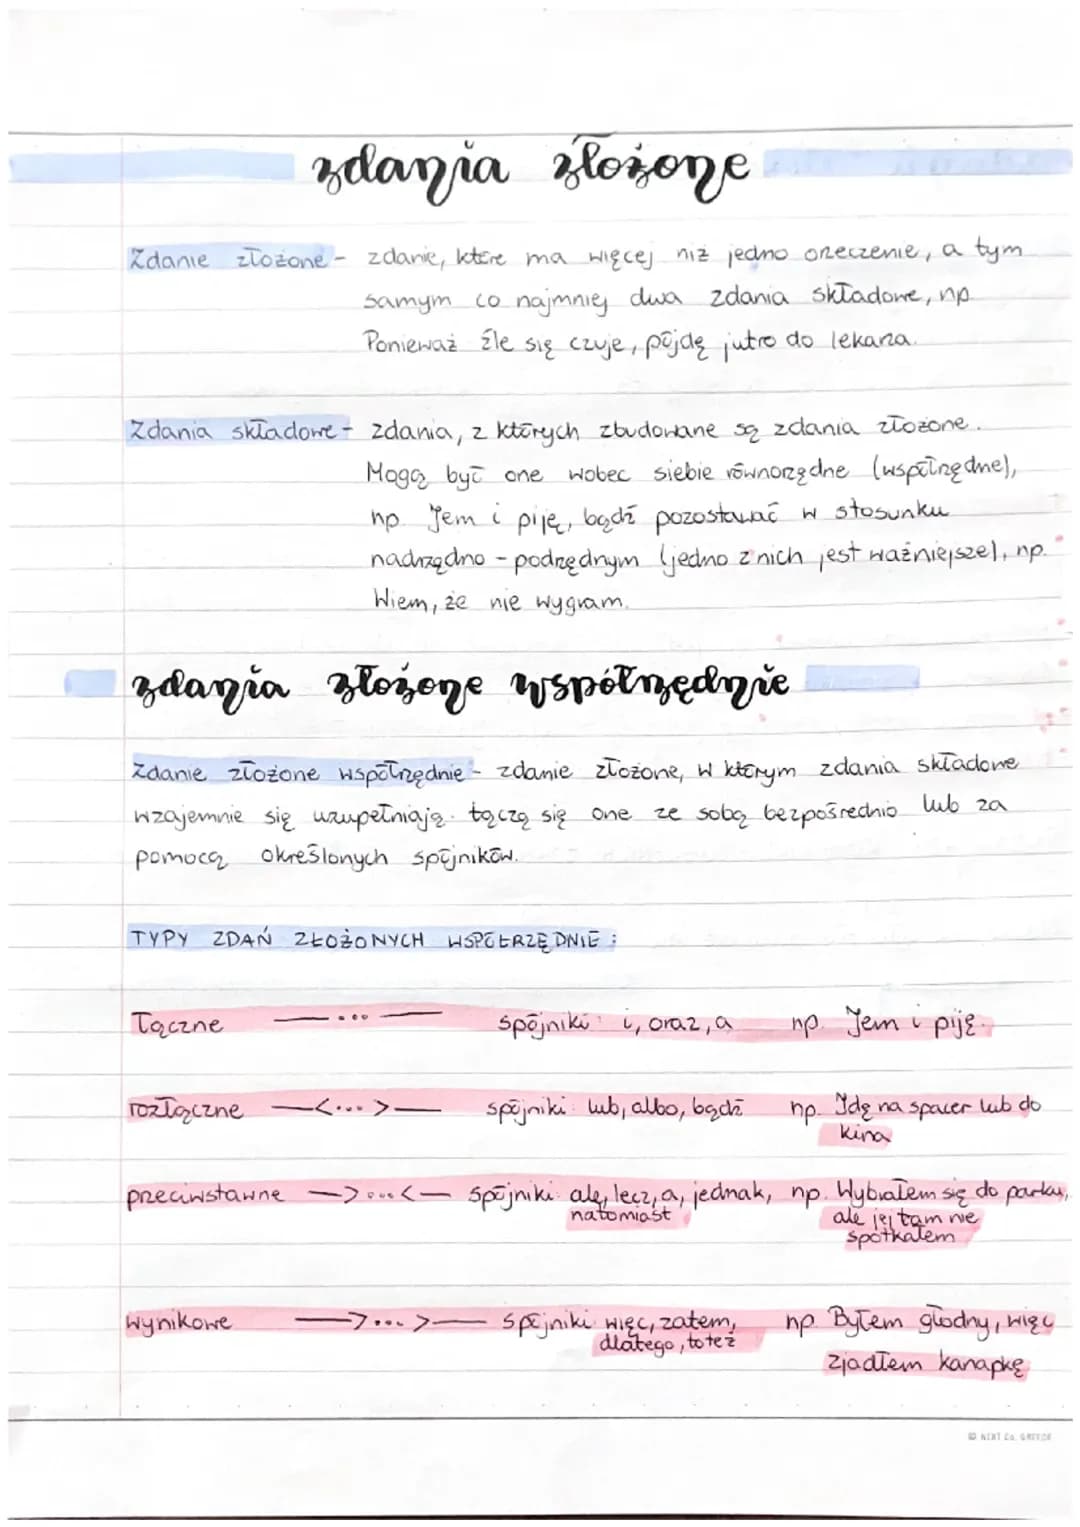 zdania złożone
Zdanie złożone - zdanie, które ma więcej niż jedno orzeczenie, a tym
samym co najmniej dwa zdania składowe, np.
Ponieważ źle się czuje, pójdę jutro do lekarza.
Zdania składowe - zdania, z których zbudowane są zdania złożone.
Mogą być one wobec siebie równorzędne (współrzędne),
np. Jem i piję, bądź pozostawać w stosunku
nadrzędno - podrzędnym (jedno z nich jest ważniejsze), np.
Wiem, że nie wygram.
zdania złożone współrzędnie
Zdanie złożone współrzędnie - zdanie złożone, w którym zdania składowe
wzajemnie się uzupełniają. Łączą się one ze sobą bezpośrednio lub za
pomocą określonych spójników.
TYPY ZDAŃ ZŁOŻONYCH WSPÓŁRZĘDNIE:
Łączne —...— spójniki: i, oraz, a np. Jem i piję.
rozłączne —<...>— spójniki: lub, albo, bądź np. Idę na spacer lub do
kina
przeciwstawne —>...<— spójniki: ale, lecz, a, jednak, np. Wybrałem się do parku,
natomiast ale jej tam nie
spotkałem
wynikowe —>...>— spójniki: więc, zatem, np. Byłem głodny, więc
dlatego, toteż zjadłem kanapkę
© NEXT Co. GREECE